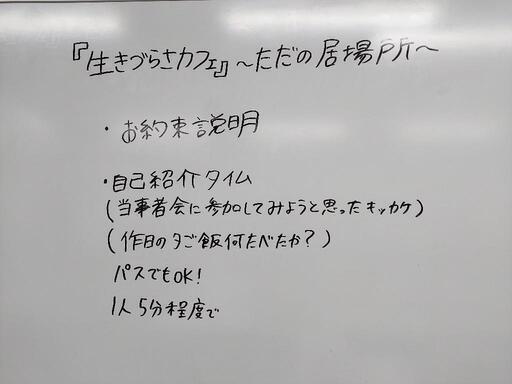 『生きづらさカフェ』～ただの居場所～
・お約束説明
・自己紹介タイム
(当事者会に参加してみようと思ったキッカケ)
(作日の夕ご飯何たべたか？)
パスでもOK!
1人5分程度で